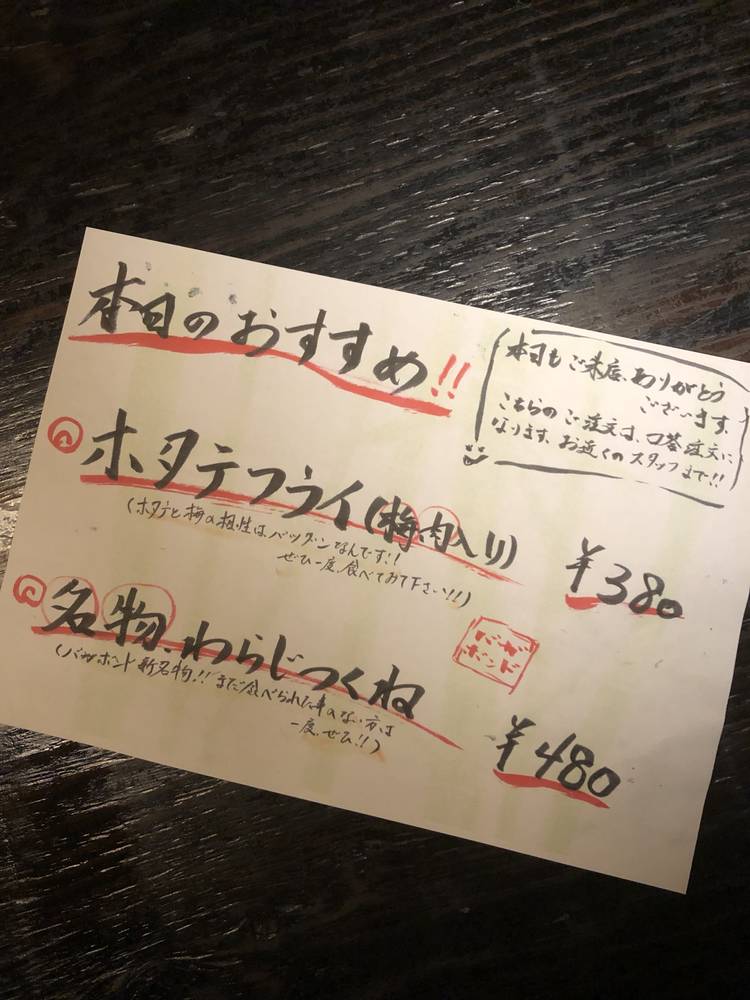 本日のおすすめ!!
本日もご来店、ありがとう
ございます。
こちらのご注文は、口答注文に
なります。お近くのスタッフまで!!
ホタテフライ(梅肉入り)
¥380
(ホタテと梅の相性は、バツグンなんです!!
ぜひ一度、食べてみて下さい!!)
名物、わらじつくね
¥480
(バガボンド新名物!!まだ食べられた事のない方は
一度、ぜひ!!)
バガ
ボンド